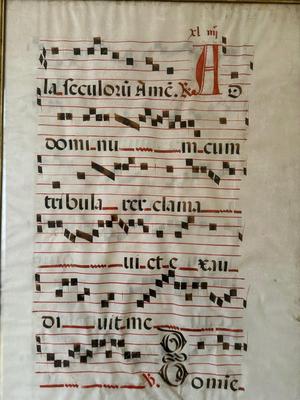 xl iiij
la seculorũ Amẽ. R. A D
dominu m cum
tribula rer clama
ui et e xau
di uit me
V. Domie